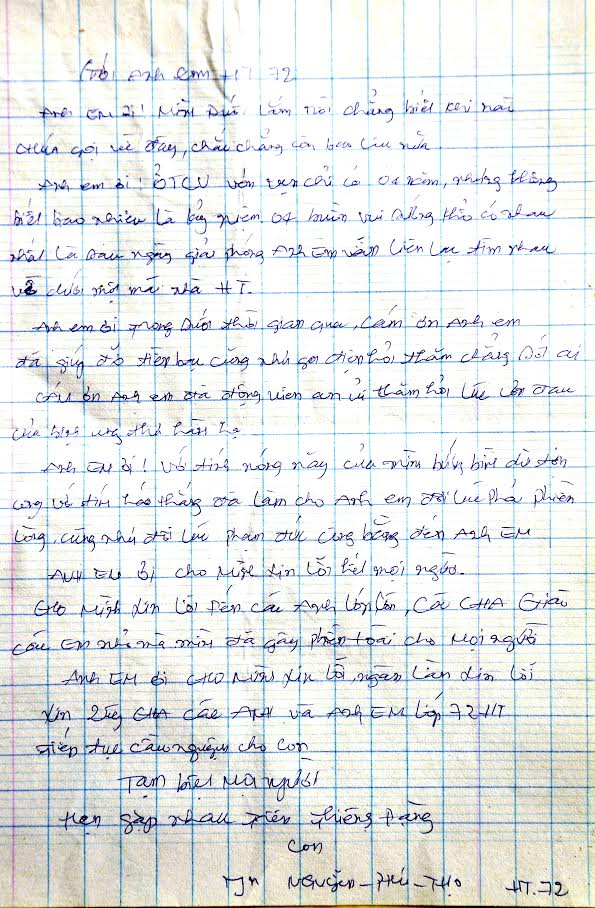 Gởi Anh Em HT 72
Anh Em ơi! Mình lắm rồi chẳng biết khi nào
CHÚA gọi về đây, chắc chẳng còn bao lâu nữa
Anh em ơi! ở TCV vỏn vẹn chỉ có 04 năm, nhưng không
biết bao nhiêu là kỷ niệm buồn vui có nhau
nhất là sau ngày giải phóng Anh Em vẫn liên lạc tìm nhau
về dưới một mái nhà HT.
Anh em ơi trong suốt thời gian qua, cám ơn Anh em
đã giúp đỡ tiền bạc cũng như gọi điện hỏi thăm chẳng sót ai
cám ơn Anh em đã động viên an ủi thăm hỏi lúc cơn đau
của bệnh ung thư hành hạ
Anh Em ơi! Với tính nóng nảy của mình
và tính háo thắng đã làm cho Anh em đôi lúc phải phiền
lòng, cũng như đôi lúc công bằng đến Anh EM
ANH EM ơi cho Mình xin lỗi hết mọi người.
CHO Mình xin lỗi Đến các Anh lớp lớn, Các CHA Giáo
các Em nhỏ mà mình đã gây phiền toái cho Mọi người
Anh EM ơi CHO Mình xin lỗi, ngàn lần xin lỗi
xin Quý CHA các ANH và Anh EM lớp 72 HT
tiếp tục cầu nguyện cho con
Tạm biệt Mọi người
Hẹn gặp nhau trên Thiêng Đàng
Con
NGUYỄN - PHÚ - THỌ HT.72